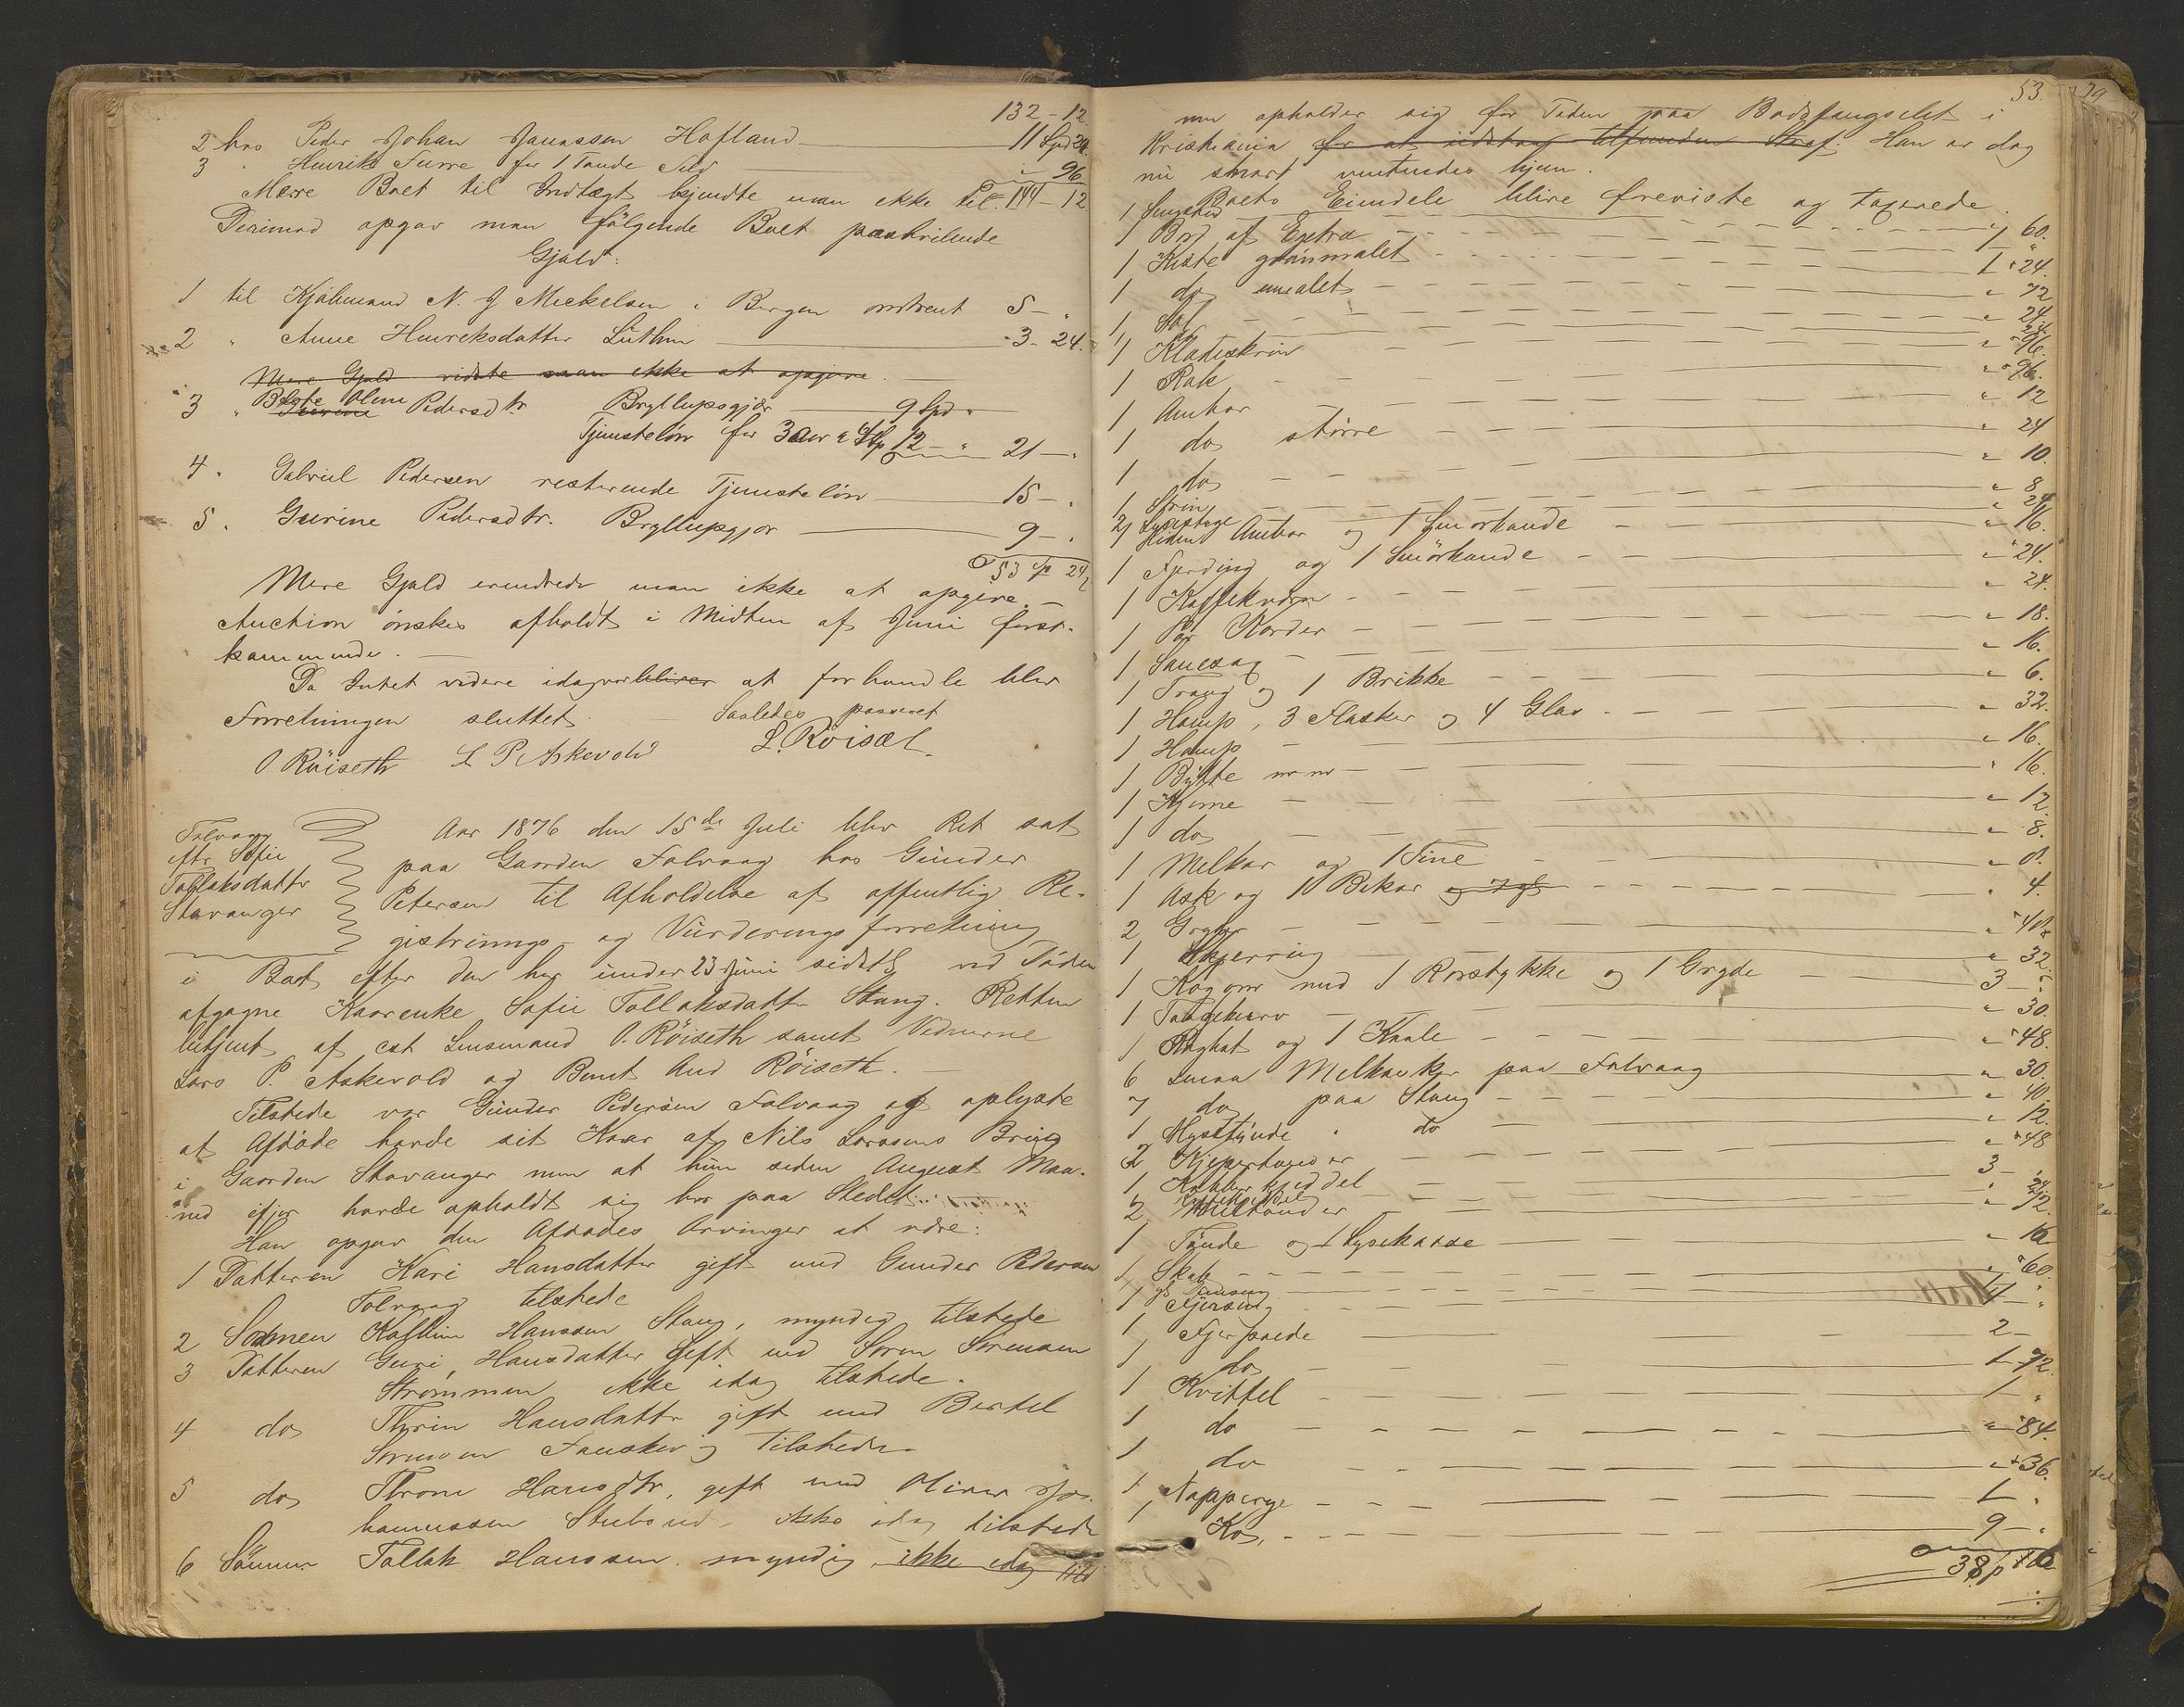 132 - 12
2 hos Peder Johan Jonassen Hofland 11 Spd 24
3 " Henrik Furre for 1 Tønde Sild " 96
Mere Boet til Indtægt kjendte man ikke til. 144 - 12
Derimod opgav man følgende Boet paahvilende
Gjæld:
1 til Kjøbmand N. J Mickelsen i Bergen omtrent 5 - "
2 " Anne Henriksdatter - 3 - 24.
Mere Gjæld vidste man ikke at opgive.
3 " Berte Oline Pedersdtr Bryllupsgjør 9 Spd "
Tjensteløn for 3 Aar a 4 Sp 12 - " 21 - "
4 " Gabriel Pedersen resterende Tjensteløn 15 - "
5 " Gurine Pedersdtr. Bryllupsgjør 9 - "
53 Sp 24
Mere Gjæld erindrede man ikke at opgive. -
Auction ønskes afholdt i Midten af Juni først-
kommende. -
Da Intet videre idag var bliver at forhandle blev
Forretningen sluttet. Saaledes passeret
O Röiseth L P Askevold L. Röisæt.
Folvaag
eftr Sofie
Tollaksdattr
Stavanger
Aar 1876 den 15de Juli blev Ret sat
paa Gaarden Folvaag hos Günder
Petersen til Afholdelse af offentlig Re-
gistrerings- og Vürderings forretning
i Boet efter den her ünder 23 Juni sidstl ved Døden
afgagne Kaarenke Sofie Tollaksdattr Stang. Retten
betjent af cst Lensmand O. Röiseth samt Vidnerne
Lars P. Askevold og Bernt And Röiseth.
Tilstede var Günder Pedersen Folvaag og oplyste
at Afdøde havde sit Kaar af Nils Larsens Brüg
i Gaarden Stavanger men at hün siden August Maa-
ned ifjor havde opholdt sig her paa Stedet.
Han opgav den Afdødes Arvinger at være:
1 Datteren Kari Hansdatter gift med Gunder Pedersen
Folvaag tilstede
2 Sønnen Hanssen Stang, myndig tilstede
3 Datteren Guri Hansdatter gift med Søren Sørensen
Strømmen ikke idag tilstede.
4 do Thrin Hansdattr gift med Bertel
Sørensen tilstede.
5 do Throne Hansdtr, gift med Oliver Jo-
hannessen Stubseid, ikke idag tilstede
6 Sønnen Tollak Hanssen, myndig ikke idag tils
53.
men opholder sig for Tiden paa Bodsfængselet i
Kristiania for at udstaa tilfunden Straf. Han er dog
nü snart ventendes hjem.
Boets Eiendele blive foreviste og taxerede.
1 Sengested
1 Bord af Extra " 60.
1 Kiste grønmalet 1 " 24.
1 do umalet " 72
1 Stol " 24.
1 Klædeskrin " 96.
1 Rok " 96.
1 Ambar " 12
1 do større " 24
1 do " 10.
1 Skrin " 8
1 Ambar og 1 Smørbunde " 16.
1 Fjerding og 1 Smørbunde " 24.
1 Kaffekværn " 24.
1 Par Karder " 18.
1 " 16.
1 Traug og 1 Brikke " 6.
1 Hamp, 3 Flasker og 4 Glas " 32.
1 Hamp " 16.
1 Bøtte " 16.
1 Kjerne " 12
1 do " 8.
1 Melkar og 1 Tine " 8.
1 Ask og 10 Beker " 4.
2 Gryder " 40
1 " 32
1 Kogovn med 1 Rørstykke og 1 Gryde 3 - "
1 " 30.
1 og 1 " 48.
6 smaa Melkauker paa Folvaag " 30.
7 do paa Stang " 40.
1 do " 12.
2 " 48
1 Kobberkjeddel 3 - "
2 Melbunder " 12.
1 Tønde og 1 Lysekasse " 16
1 Skab " 60.
1 4 - "
1 Fjerpude 2 -
1 do 1 - 72
1 Kvittel 1 - "
1 do " 84.
1 do " 36.
1 1 - "
1 Ko, 9 - "
38 p